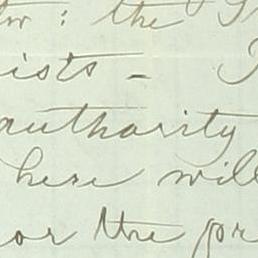 : the
ists -
authority
here will
or the pr